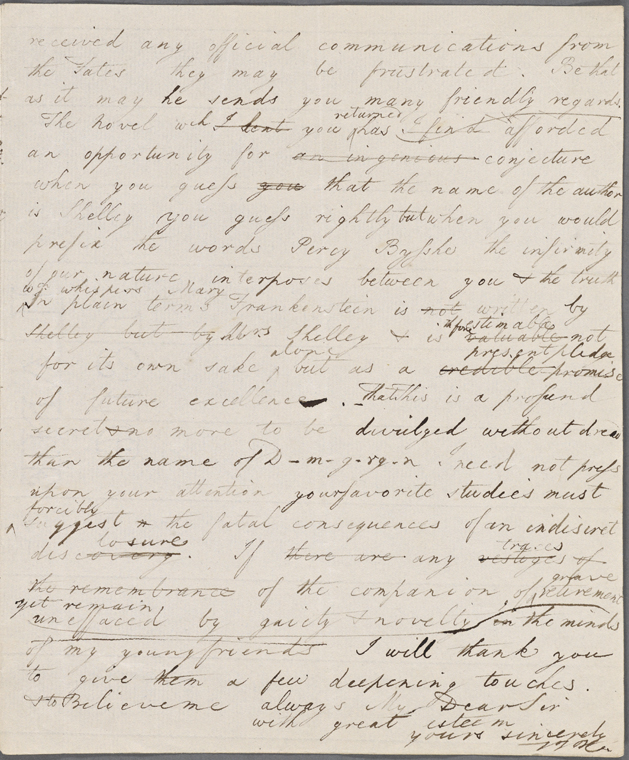 received any official communications from
the Fates they may be frustrated. Be that
as it may he sends you many friendly regards.
The novel wch I sent you returned has I find afforded
an opportunity for an ingenious conjecture
when you guess you that the name of the author
is Shelley you guess rightly but when you would
prefix the words Percy Bysshe the infirmity
of our nature interposes between you & the truth
whispers Mary
In plain terms Frankenstein is not written by
Shelley but by Mrs Shelley & is estimable
valuable not
present pledge
for its own sake alone, but as a credible promise
of future excellence. That this is a profund
secret & no more to be divulged without dread
than the name of D-m-g-rg-n. I need not press
upon your attention your favorite studies must
forcibly
suggest the fatal consequences of an indiscret
closure
discovery. If there are any vestiges traces of
the remembrance of the companion of grave retirement
yet remain
uneffaced by gaiety & novelty in the minds
of my young friends I will thank you
to give them a few deepening touches.
Believe me always My Dear Sir
with great esteem
yours sincerely